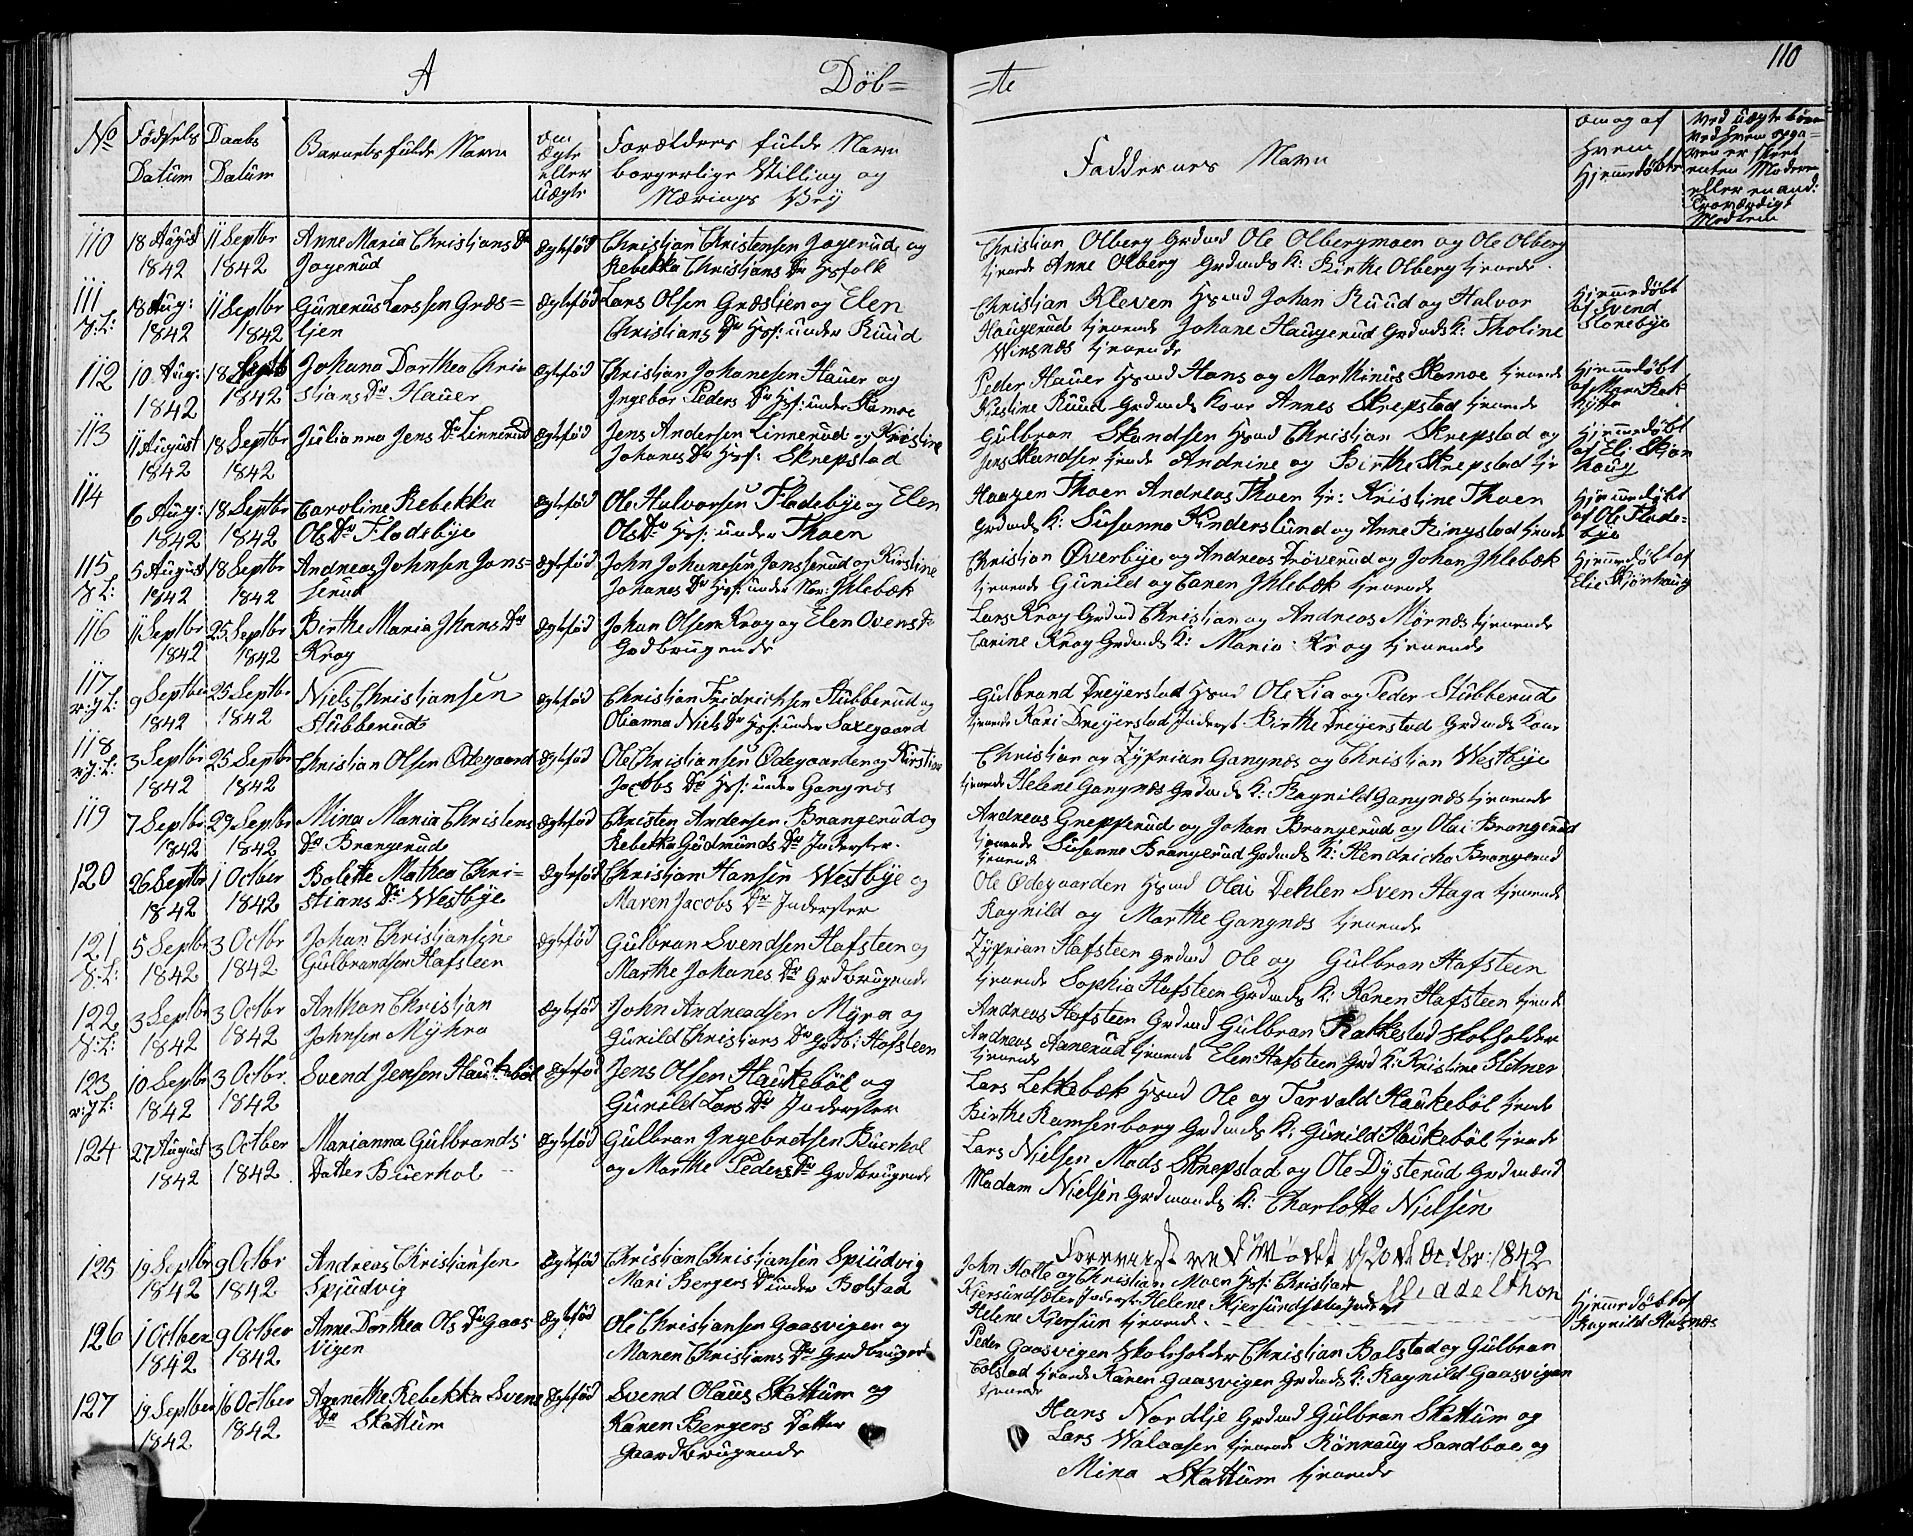 110
A Döb= =te
No
Födsels Datum
Daabs Datum
Barnets fulde Navn
om Ægte eller Uægte
Forældres fulde Navn borgerlige Stilling og Nærings Vej
Faddernes Navn
om og af hvem Hjemmedöbte
110 18 August 1842 11 Septbr 1842 Anne Maria Christians Dr Jogerud Ægtefød Christian Christensen Jogerud og Rebekka Christians Dr Hsfolk
Christian Olberg Grdmd Ole Olbergmoen og Ole Olberg
tjenende Anne Olberg Grdmds K: Birthe Olberg tjenende
111 18 Aug: 1842 11 Septbr 1842 Gunerus Larssen Græs= lien Ægtefød Lars Olsen Græslien og Elen Christians Dr Hsf: under Ruud
Christian Kleven Hsmd Johan Ruud og Halvor
Haugerud tjenende Johane Haugerud Grdmds K: Tholine
Wirsnæs tjenende
Hjemmedöbt af Svend Slorebye
112 10 Aug: 1842 18 Septb 1842 Johana Dorthea Chri stians Dr Hauer Ægtefød Christian Johanesen Hauer og Ingebor Peders Dr Hsf: under Skamoe
Peder Hauer Hsmd Hans og Marthinus Skamoe tjenende
Kirstine Ruud Grdmds Kone Annes Skrepstad tjenende
Hjemmedöbt af Mari
113 11 August 1842 18 Septbr 1842 Julianna Jens Dr Linnerud Ægtefød Jens Andersen Linnerud og Kristine Johanes Dr Hsf: Skrepstad
Gulbran Skandsen Hsmd Christian Skrepstad og
Jens Skandser tjende Andrine og Birthe Skrepstad tje
Hjemmedöbt af Eli Skjön houg
114 6 Aug: 1842 18 Septbr 1842 Caroline Rebekka Ols Dr Fladebye Ægtefød Ole Halvorsen Fladebye og Elen Ols Dr Hsf: under Thoen
Haagen Thoen Andreas Thoen tje: Kristine Thoen
Grdmds K: Susanna Kinderslund og Anne Ringstad tjende
Hjemmedöbt af Ole Flade= bye
115 5 August 1842 18 Septbr 1842 Andreas Johnsen Jons= serud Ægtefød John Johanesen Jonsserud og Kirstine Johanes Dr Hsf: under Nor: Ihlebæk
Christian Överbye og Andreas Tröverud og Johan Ihlebæk
tjenende Gunild og Caren Ihlebæk tjenende
Hjemmedöbt af Elie Skjönhaug
116 11 Septbr 1842 25 Septbr 1842 Birthe Maria Jhans Dr Krog Ægtefød Johan Olsen Krog og Elen Ovens Dr Grdbrugende
Lars Krog Grdmd Christian og Andreas Mörnæs tjenende
Carine Krog Grdmds K: Maria Krog tjenende
117 9 Septbr 1842 25 Septbr 1842 Niels Christiansen Stubberud Ægtefød Christian Fridrichsen Stubberud og Olianna Niels Dr Hsf: under Saxegaard
Gulbrand Dreyerstad Hsmd Ole Lia og Peder Stubberud
tjenende Kari Dreyerstad Inderst Birthe Dreyerstad Grdmds Kone
118 3 Septbr 1842 25 Septbr 1842 Christian Olsen Ödegaard Ægtefød Ole Christiansen Ödegaarden og Kirstine Jacobs Dr Hsf: under Gangnæs
Christian og Zyprian Gangnæs og Christian Westbye
tjenende Helene Gangnæs Grdmds K: Ragnild Gangnæs tjenende
119 7 Septbr 1842 29 Septbr 1842 Mina Maria Christens Dr Brangerud Ægtefød Christen Andersen Brangerud og Rebekka Gudmunds Dr Inderster
Andreas Grepperud og Johan Brangerud og Olai Brangerud
tjenende Susanne Brangerud Grdmds K: Hendricha Brangerud
tjenende
120 26 Septbr 1842 1 Octber 1842 Bolette Mathea Chri= stians Dr Westbye Ægtefød Christian Hansen Westbye og Maren Jacobs Dr Inderster
Ole Ödegaarden Hsmd Olai Dehlen Sven Haga tjenende
Ragnild og Marthe Gangnæs tjenende
121 5 Septbr 1842 3 Octbr 1842 Johan Christiansen Gulbrandsen Hafsteen Ægtefød Gulbran Svendsen Hafsteen og Marthe Johanes Dr Grdbrugende
Zyprian Hafsteen Grdmd Ole og Gulbran Hafsteen
tjenende Sophia Hafsteen Grdmds K: Karen Hafsteen tjende
122 3 Septbr 1842 3 Octbr 1842 Anthon Christian Johnsen Myhra Ægtefød John Andreadsen Myra og Gunild Christians Dr Grdb: Hafsteen
Andreas Hafsteen Grdmd Gulbran Rakkestad Skolholder
Andreas Aanerud tjenende Elen Hafsteen Grd K: Kristine Hdner
tjenende
123 10 Septbr 1842 3 Octbr 1842 Svend Jensen Haukeböl Ægtefød Jens Olsen Haukeböl og Gunild Lars Dr Inderster
Lars Lekkebæk Hsmd Ole og Torvald Haukeböl tjende
Birthe Ramsenborg Grdmds K: Gunild Haukeböl tjende
124 27 August 1842 3 Octber 1842 Marianna Gulbrands Datter Buerhol Ægtefød Gulbran Ingebretsen Buerhol og Marthe Peders Dr Grdbrugende
Lars Nielsen Mads Skrepstad og Ole Dysterud Grdmænd
Madam Nielsen Grdmands K: Charlotte Nielsen
Forevist ved Mödet d 20 de Octbr: 1842
Middelthon
125 19 Septbr 1842 9 Octbr 1842 Andreas Christiansen Spjudvig Ægtefød Christian Christiansen Spiudvig Mari Bergers Dr under Bolstad
John Holte og Christian Moen Hsf: Christian
Kjersundseter Inderster Helene Kjersundseter Inderst
Helene Kjersun tjenend
126 1 Octber 1842 9 Octber 1842 Anne Dorthea Ols Dr Gaas vigen Ægtefød Ole Christiansen Gaasvigen og Maren Christians Dr Grdbrugende
Peder Gaasvigen Skoleholder Christian Bolstad og Gulbran
Bolstad tjende Karen Gaasvigen Grdmds K: Ragnild Gaasvigen
tjenende
Hjemmedöbt af Ragnild
127 19 Septber 1842 16 Octber 1842 Agnethe Rebekka Svens Dr Skattum Ægtefød Svend Olaus Skattum og Karen Bergers Datter Gaardbrugende
Hans Nordlje Grdmd Gulbran Skattum og
Lars Walaasen tjenende Rönnaug Sandboe og
Mina Skattum tjenende